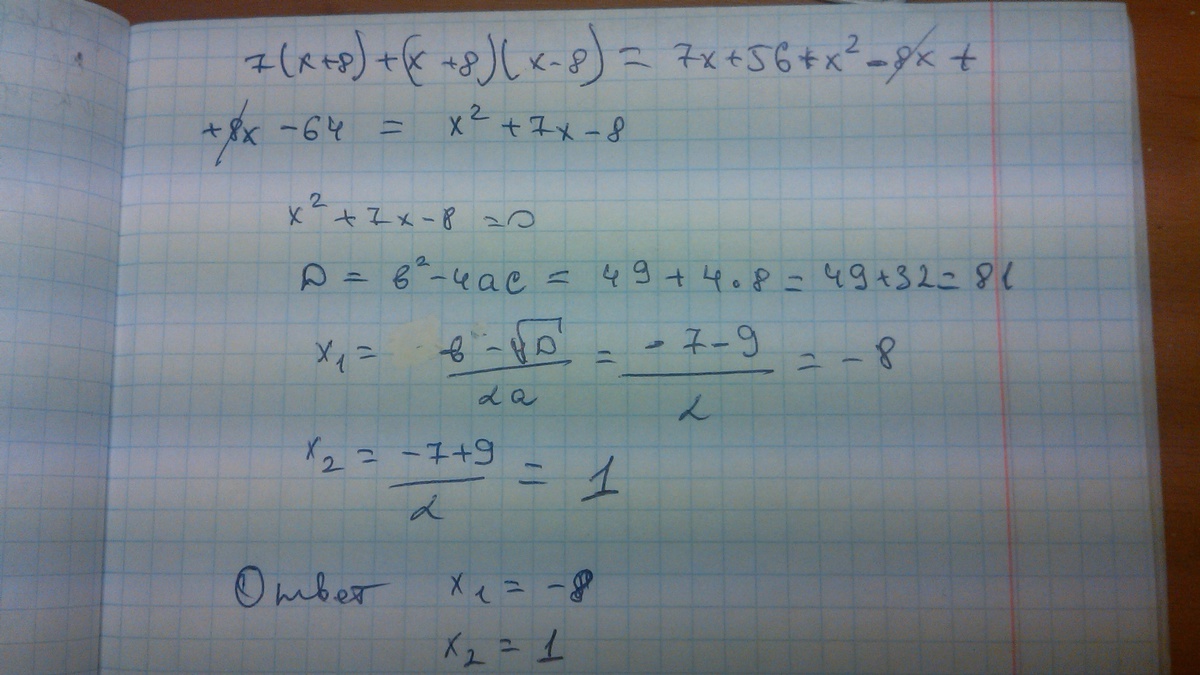 7(x+8)+(x+8)(x-8) = 7x+56+x²-8x+
+8x -64 = x²+7x-8
x²+7x-8=0
D = в²-4ac = 49+4·8=49+32=81
x₁= -в-√D/2a = -7-9/2 = -8
x₂ = -7+9/2 = 1
Ответ x₁ = -8
x₂ = 1